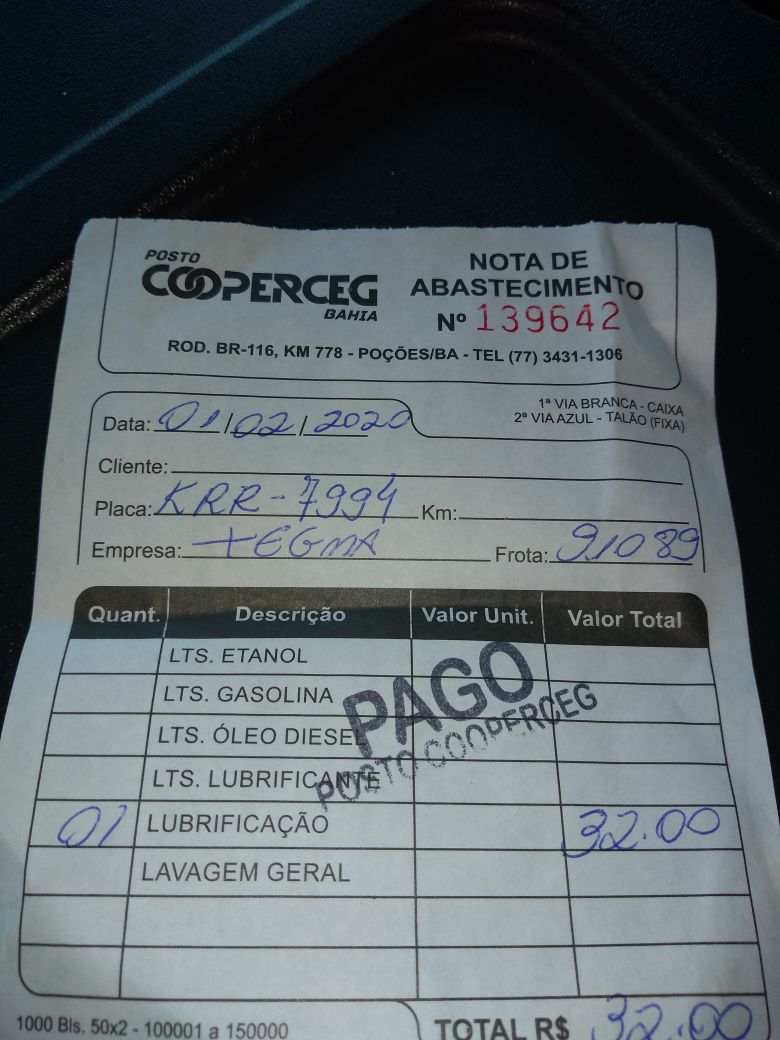 POSTO
COOPERCEG
BAHIA
NOTA DE
ABASTECIMENTO
Nº 139642
ROD. BR-116, KM 778 - POÇÕES/BA - TEL (77) 3431-1306
1ª VIA BRANCA - CAIXA
2ª VIA AZUL - TALÃO (FIXA)
Data: 01/02/2020
Cliente:
Placa: KRR-7994 Km:
Empresa: TEGMA Frota: 91089
Quant. Descrição Valor Unit. Valor Total
LTS. ETANOL
LTS. GASOLINA
LTS. ÓLEO DIESEL
LTS. LUBRIFICANTE
PAGO
POSTO COOPERCEG
01 LUBRIFICAÇÃO 32.00
LAVAGEM GERAL
1000 Bls. 50x2 - 100001 a 150000
TOTAL R$ 32.00